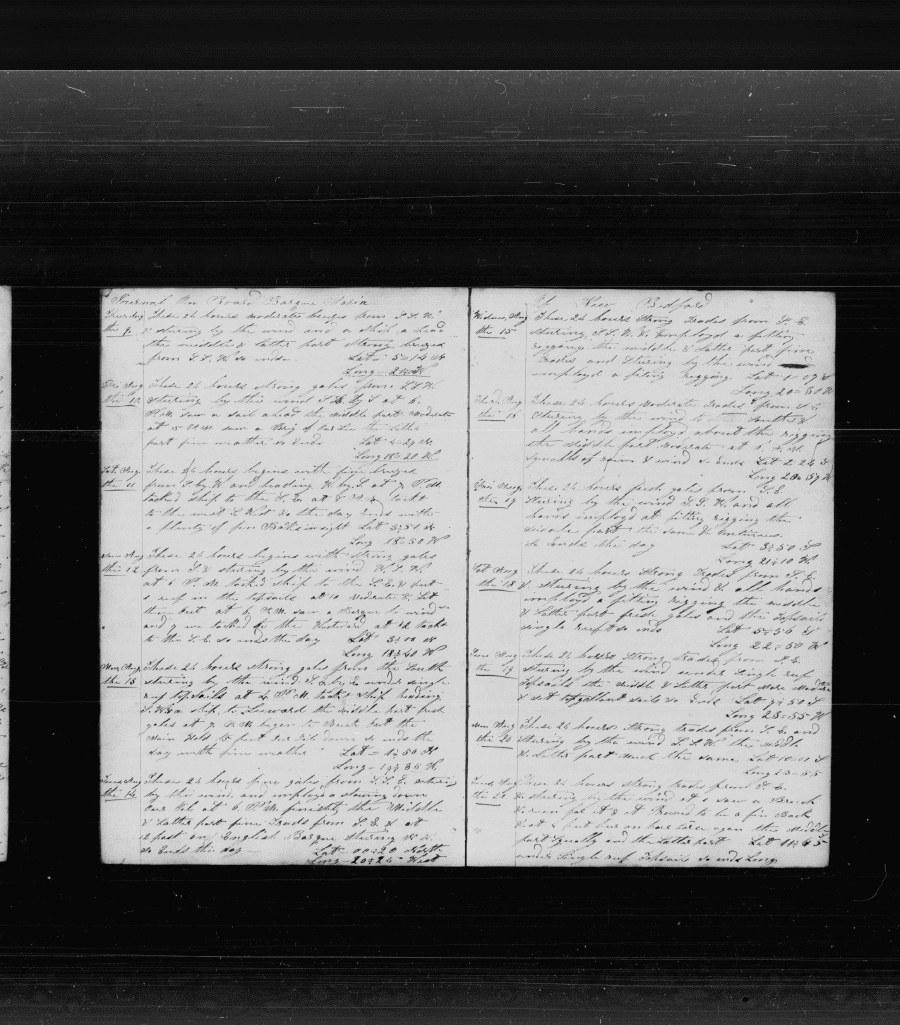 Journal On Board Barque Maria
Thursday These 24 hours moderate breezes from S.S.W.
the 9 & stering by the wind and a ship a head
the middle & latter part strong breezes
from S.S.W. So ends Lat 5=14 N
Long=20= W
Fri Aug These 24 hours strong gales from S S W
the 10 stering by the wind S E by S at 6.
P.M. saw a sail ahead the middle part Moderate
at 5 saw a Brig the latter
part fine weather So Ends Lat 4=29 N
Long 18=20 W
Sat. Aug These 24 hours begins with fine breezes
the 11 from S by W and heading W by S at 7 P.M.
tacked ship to the S.E. at tackt
to the S West So the day Ends with
a plenty of fin Backs in sight Lat 3=51 N
Long 18=50 W
Aug These 24 hours begins with strong gales
the 12 from S & stering by the wind
at 6 P.M. tacked ship to the S.E. & put
a reef in the topsails at 10 Moderate & Let
them out at 6 saw a Barque to wind
and 9 we tacked to the Westward at 12 tackt
to the S.E. so ends the day Lat 3=00 N
Long 18=40 W
Mon, Aug These 24 hours strong gales from the South
the 13 stering by the wind S.E. by E under single
reef topsails at 4 P.M. tackt ship heading
ship to Leeward the middle part fresh
gales at 7 began to Break out the
Main Hold to put so ends the
day with fine weather Lat = 1=50 N
Long = 19=35 W
Tues Aug These 24 hours fine gales from S.S.E. stering
the 14 by the wind and employd a stowing down
Our at 6. P.M. finisht the Middle
& Latter part fine Trads from S.E. & at
past an English Barque Stering N.W.
So Ends this day — Lat 00=20 North
Long—20=24 West
Of New Bedford
Aug These 24 hours Strong Trades from S.E.
the 15 stering S.S.W. & Employd a fitting
rigging the middle & latter part fine
Trades and Stering by the wind and
employd a fiting rigging Lat 1=07 S
Long 20=30 W
Thur. Aug These 24 hours Moderate Trades from S.E.
the 16 stering by the wind to the Southrd &
all hands employd about the rigging
the Middle part Moderate at
Squalls of rain & wind So Ends Lat 2=24 S
Long 20=57 W
Fri, Aug These 24 hours fresh gales from S.E.
the 17 stering by the wind S.S.W. and all
hands employd at fitting rigging the
middle part the same & Continues
So Ends this day Lat 3=50 S
Long 21=10 W
Sat Aug These 24 hours Strong Trades from S.E.
the 18 & stering by the wind & all hands
employd a fiting rigging the middle
& Latter part fresh gales and the topsails
single reeft so ends Lat 5=56 S
Long 22=50 W
Aug These 24 hours Strong trades from S.E.
the 19 stering by the wind under single reef
topsails the Middle & Latter part More Moderate
& set topgallant sails so Ends Lat 50 S
Long 23=55 W
Mon Aug These 24 hours strong trades from S.E. and
the 20 stering by the wind S.S.W. the middle
& Latter part much the same Lat 10=10 S
Long 23=55
Tues Aug These 24 hours strong trades from S.E.
the 21 & stering by the wind at saw a Breach
& run for it & it Proved to be a fin Back
upon the Middle
part squally and the Latter part Lat 11=45
under single reef topsails so ends Long